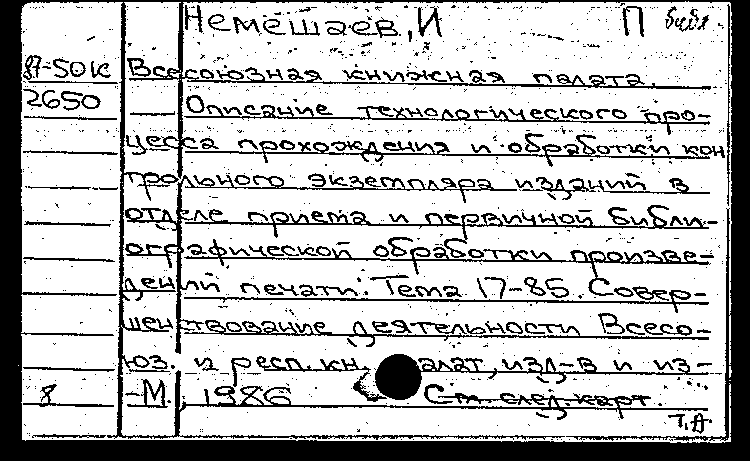 Немешаев, И П библ.
87-50к Всесоюзная книжная палата.
2650 Описание технологического про-
цесса прохождения и обработки кон
трольного экземпляра изданий в
отделе приема и первичной библи-
ографической обработки произве-
дений печати: Тема 17-85. Совер-
шенствование деятельности Всесо-
юз. и респ. кн. палат, изд-в и из-
8 -М., 1986 См след. карт.
Т.А.